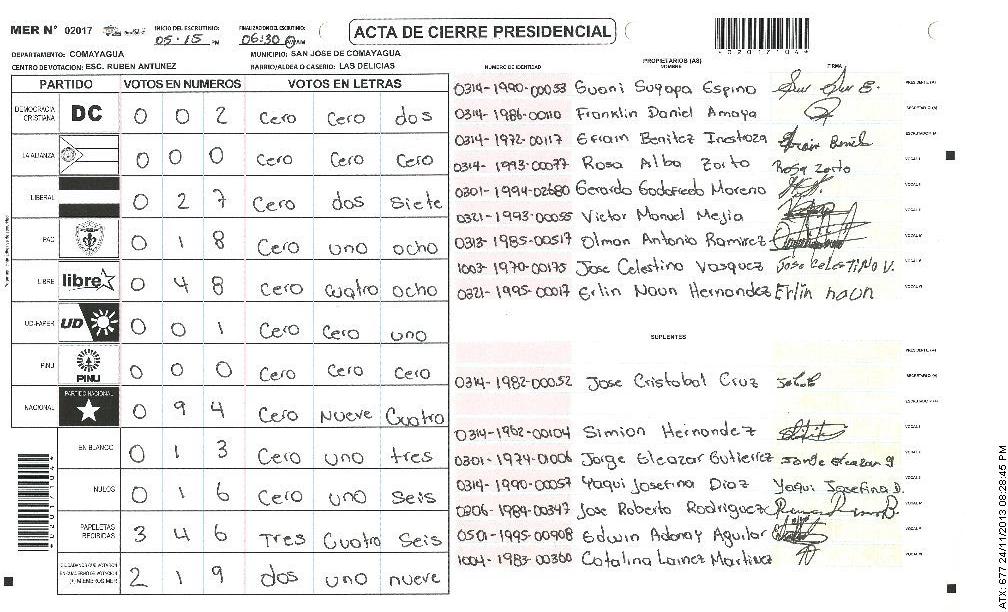 MER N° 02017 INICIO DEL ESCRUTINIO: 05:15 PM FINALIZACION DEL ESCRUTINIO: 06:30 PM ACTA DE CIERRE PRESIDENCIAL
DEPARTAMENTO: COMAYAGUA MUNICIPIO: SAN JOSE DE COMAYAGUA
CENTRO DE VOTACION: ESC. RUBEN ANTUNEZ BARRIO/ALDEA O CASERIO: LAS DELICIAS
PARTIDO VOTOS EN NUMEROS VOTOS EN LETRAS
DEMOCRACIA CRISTIANA DC 0 0 2 Cero Cero dos
LA ALIANZA 0 0 0 Cero Cero Cero
LIBERAL 0 2 7 Cero dos Siete
PAC 0 1 8 Cero uno ocho
LIBRE libre 0 4 8 Cero cuatro ocho
UD-FAPER UD 0 0 1 Cero Cero uno
PINU PINU 0 0 0 Cero Cero Cero
NACIONAL PARTIDO NACIONAL 0 9 4 Cero Nueve Cuatro
EN BLANCO 0 1 3 Cero uno tres
NULOS 0 1 6 Cero uno Seis
PAPELETAS RECIBIDAS 3 4 6 Tres Cuatro Seis
CIUDADANOS QUE VOTARON EN CUADERNO DE VOTACION (+) MIEMBROS MER 2 1 9 dos uno nueve
PROPIETARIOS (AS)
NUMERO DE IDENTIDAD NOMBRE FIRMA
0314-1990-00053 Suani Sugapa Espino PRESIDENTE (A)
0314-1986-00110 Franklin Daniel Amaya SECRETARIO (A)
0314-1972-00117 Efrain Benitez Inestroza ESCRUTADOR (A)
0314-1993-00077 Rosa Alba Zorto Rosa Zorto VOCAL I
0301-1994-02680 Gerardo Godofredo Moreno
0321-1993-00055 Victor Manuel Mejia
0313-1985-00517 Olman Antonio Ramirez
1003-1970-00175 Jose Celestino Vasquez Jose CELESTINO V.
0321-1995-00017 Erlin Noun Hernandez Erlin noun
SUPLENTES
PRESIDENTE (A)
0314-1982-00052 Jose Cristobal Cruz SECRETARIO (A)
ESCRUTADOR (A)
0314-1962-00104 Simion Hernandez
0301-1974-01006 Jorge Eleazar Gutierrez
0314-1990-00057 Yaqui Josefina Diaz Yaqui Josefina D.
0306-1984-00347 Jose Roberto Rodriguez
0501-1995-00908 Edwin Adonay Aguilar
1004-1983-00360 Catalina Lainez Martinez
*02017104*
*02017104*
ATX: 677.24/11/2013 08:28:45 PM